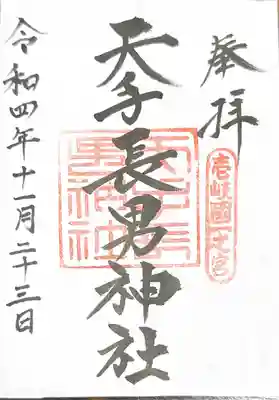 奉拝
壱岐國一之宮
天手長男神社
令和四年十一月二十三日